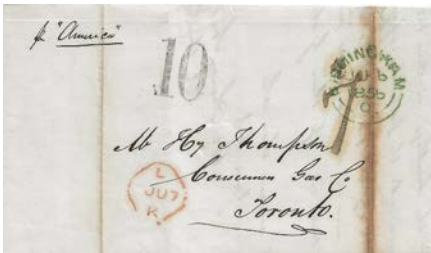 p "America"
10
BIRMINGHAM
JU 6
1856
Mr Hy Thompson
Consumers Gas Co
Toronto.
L
JU 7
K